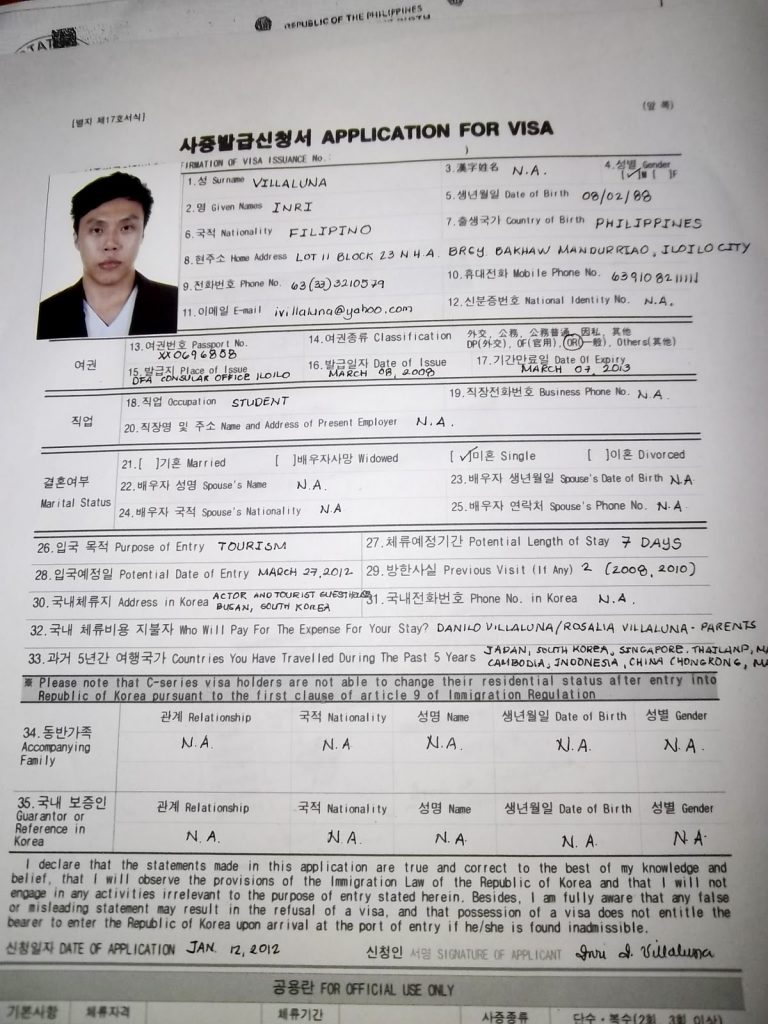 REPUBLIC OF THE PHILIPPINES
[별지 제17호서식]
(앞 쪽)
사증발급신청서 APPLICATION FOR VISA
FIRMATION OF VISA ISSUANCE No.: )
1.성 Surname VILLALUNA
3.漢字姓名 N.A.
4.성별 Gender [✓]M [ ]F
2.명 Given Names INRI
5.생년월일 Date of Birth 08/02/88
6.국적 Nationality FILIPINO
7.출생국가 Country of Birth PHILIPPINES
8.현주소 Home Address LOT 11 BLOCK 23 N.H.A. BRGY. BAKHAW MANDURRIAO, ILOILO CITY
9.전화번호 Phone No. 63(33)3210579
10.휴대전화 Mobile Phone No. 639108211111
11.이메일 E-mail ivillaluna@yahoo.com
12.신분증번호 National Identity No. N.A.
여권
13.여권번호 Passport No. XX0696858
14.여권종류 Classification 外交, 公務, 公務普通, 因私, 其他
DP(외交), OF(官用), OR(一般), Others(其他)
15.발급지 Place of Issue DFA CONSULAR OFFICE ILOILO
16.발급일자 Date of Issue MARCH 08, 2008
17.기간만료일 Date Of Expiry MARCH 07, 2013
직업
18.직업 Occupation STUDENT
19.직장전화번호 Business Phone No. N.A.
20.직장명 및 주소 Name and Address of Present Employer N.A.
결혼여부 Marital Status
21.[ ]기혼 Married [ ]배우자사망 Widowed [✓]미혼 Single [ ]이혼 Divorced
22.배우자 성명 Spouse's Name N.A.
23.배우자 생년월일 Spouse's Date of Birth N.A
24.배우자 국적 Spouse's Nationality N.A
25.배우자 연락처 Spouse's Phone No. N.A.
26.입국 목적 Purpose of Entry TOURISM
27.체류예정기간 Potential Length of Stay 7 DAYS
28.입국예정일 Potential Date of Entry MARCH 27, 2012
29.방한사실 Previous Visit (If Any) 2 (2008, 2010)
30.국내체류지 Address in Korea ACTOR AND TOURIST GUESTHOUSE
BUSAN, SOUTH KOREA
31.국내전화번호 Phone No. in Korea N.A.
32.국내 체류비용 지불자 Who Will Pay For The Expense For Your Stay? DANILO VILLALUNA/ROSALIA VILLALUNA - PARENTS
33.과거 5년간 여행국가 Countries You Have Travelled During The Past 5 Years JAPAN, SOUTH KOREA, SINGAPORE, THAILAND, MA
CAMBODIA, INDONESIA, CHINA (HONGKONG, MA
※ Please note that C-series visa holders are not able to change their residential status after entry into
Republic of Korea pursuant to the first clause of article 9 of Immigration Regulation
34.동반가족 Accompanying Family
관계 Relationship 국적 Nationality 성명 Name 생년월일 Date of Birth 성별 Gender
N.A. N.A N.A. N.A. N.A.
35.국내 보증인 Guarantor or Reference in Korea
관계 Relationship 국적 Nationality 성명 Name 생년월일 Date of Birth 성별 Gender
N.A. N.A. N.A. N.A. N.A.
I declare that the statements made in this application are true and correct to the best of my knowledge and
belief, that I will observe the provisions of the Immigration Law of the Republic of Korea and that I will not
engage in any activities irrelevant to the purpose of entry stated herein. Besides, I am fully aware that any false
or misleading statement may result in the refusal of a visa, and that possession of a visa does not entitle the
bearer to enter the Republic of Korea upon arrival at the port of entry if he/she is found inadmissible.
신청일자 DATE OF APPLICATION JAN. 12, 2012 신청인 서명 SIGNATURE OF APPLICANT Inri I. Villaluna
공용란 FOR OFFICIAL USE ONLY
기본사항 체류자격 체류기간 사증종류 단수·복수(2회, 3회 이상)